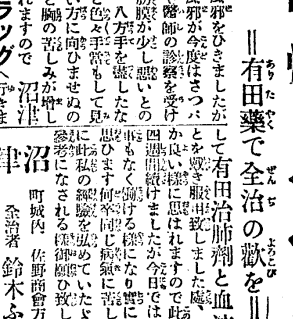 ＝有田藥で全治の歡を＝
して有田治肺劑と血
とを數き服用致しました處、
か良い樣に思はれますので此
四週間續けましたが今日では
車もなく働ける樣になり實に
思ひます何卒同じ病氣に苦し
に此私の經驗を弘めていたよ
參考になされる樣御願ひ致し
町城內 佐野商會方
全治者 鈴木ふ
沼
風邪をひきましたが
風邪が今度はさつパ
醫師の診察を受け
肋膜が少し惡いとの
八方手を盡したな
と色々手當もして見
い方に向ひませぬの
と胸の苦しみが增し
れますので 沼津
ラッグへ行きま
津